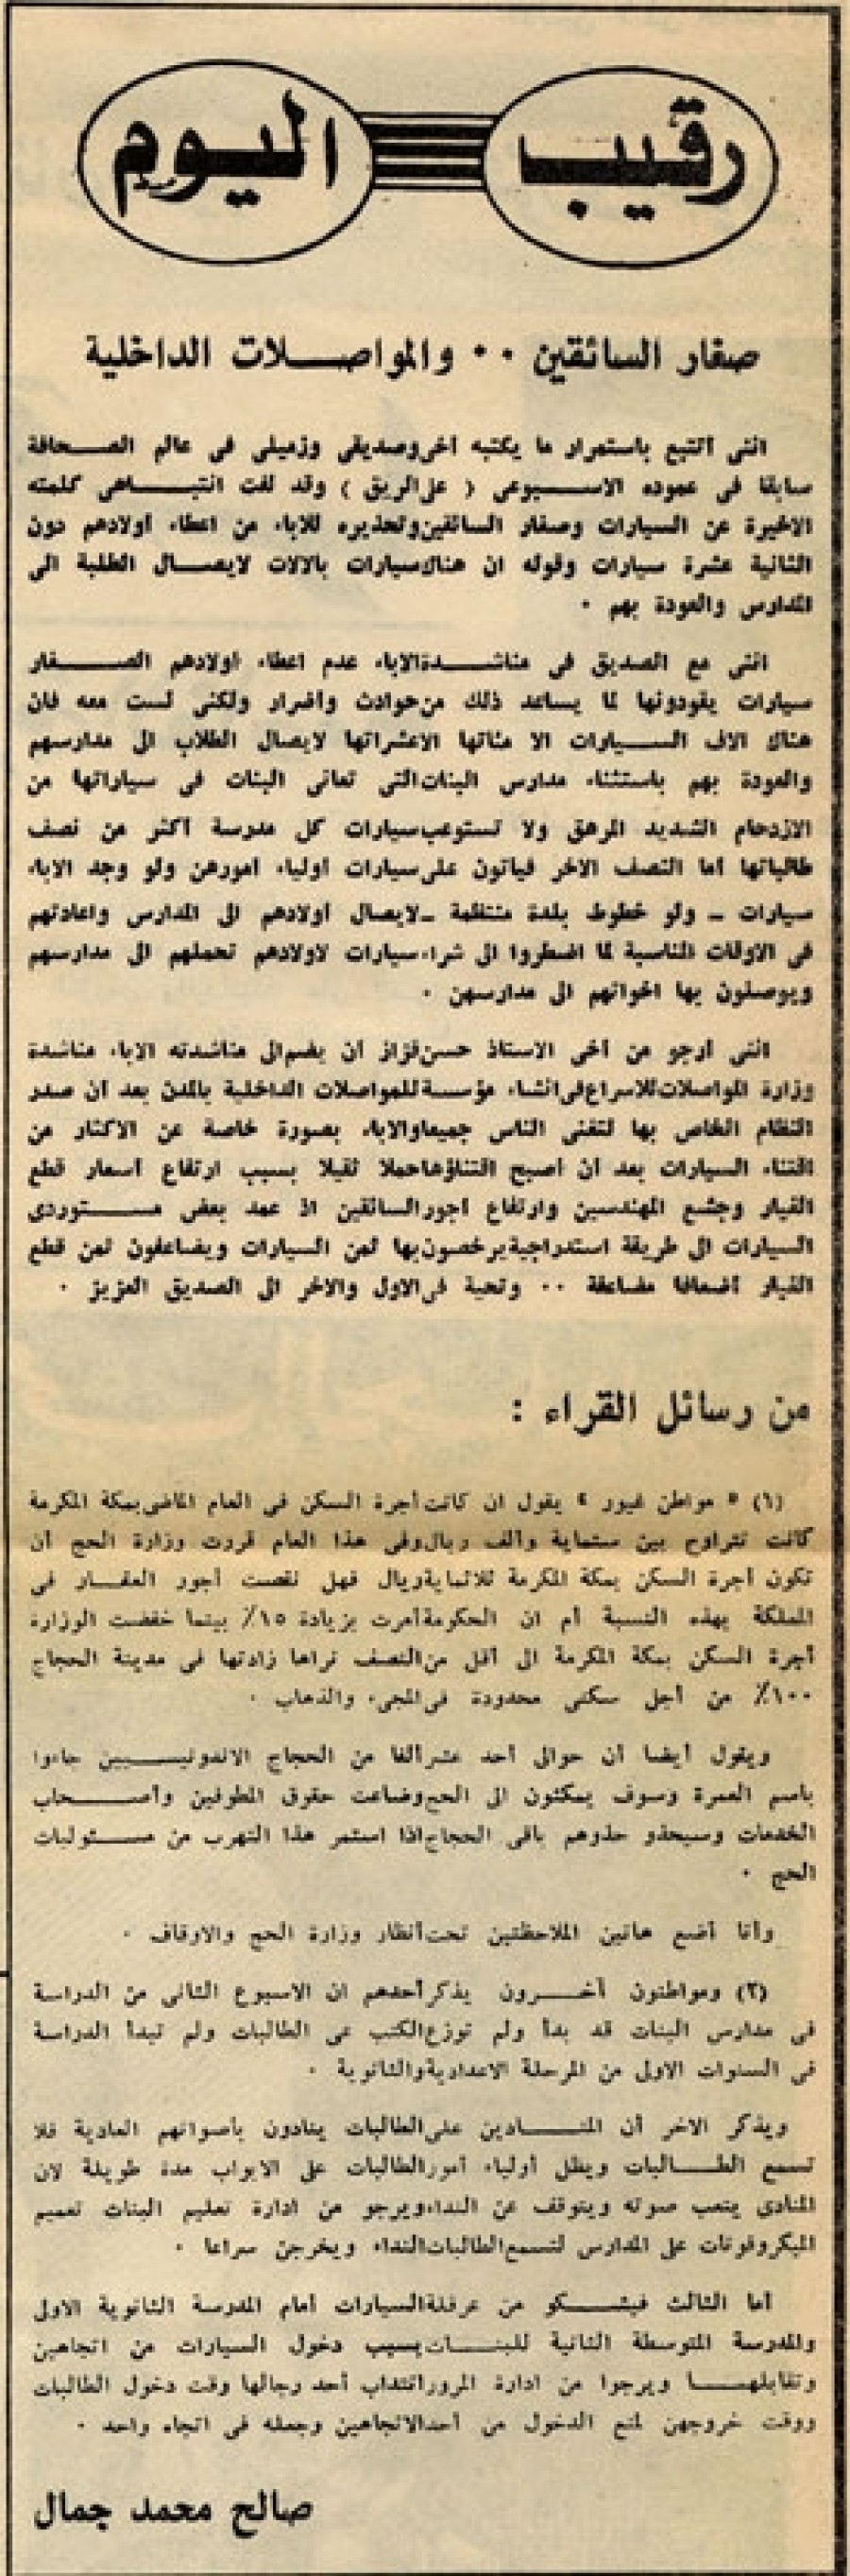 رقيب اليوم
صغار السائقين ٠٠ والمواصلات الداخلية
اننى أتتبع باستمرار ما يكتبه أخى وصديقى وزميلى فى عالم الصحافة
سابقا فى عموده الاسبوعى ( على الريق ) وقد لفت انتباهى كلمته
الاخيرة عن السيارات وصغار السائقين وتحذيره للاباء من اعطاء أولادهم دون
الثانية عشرة سيارات وقوله ان هناك سيارات بالالات لايصال الطلبة الى
المدارس والعودة بهم ٠
اننى مع الصديق فى مناشدة الاباء عدم اعطاء أولادهم الصغار
سيارات يقودونها لما يساعد ذلك من حوادث وأضرار ولكنى لست معه فان
هناك الاف السيارات الا مئاتها الا عشراتها لايصال الطلاب الى مدارسهم
والعودة بهم باستثناء مدارس البنات التى تعانى البنات فى سياراتها من
الازدحام الشديد المرهق ولا تستوعب سيارات كل مدرسة أكثر من نصف
طالباتها أما النصف الاخر فيأتون على سيارات أولياء أمورهن ولو وجد الاباء
سيارات ـ ولو خطوط بلدة منتظمة ـ لايصال أولادهم الى المدارس واعادتهم
فى الاوقات المناسبة لما اضطروا الى شراء سيارات لاولادهم تحملهم الى مدارسهم
ويوصلون بها اخواتهم الى مدارسهن ٠
اننى أرجو من أخى الاستاذ حسن قزاز أن يضم الى مناشدته الاباء مناشدة
وزارة المواصلات للاسراع فى انشاء مؤسسة للمواصلات الداخلية بالمدن بعد أن صدر
النظام الخاص بها لتغنى الناس جميعا والاباء بصورة خاصة عن الاكثار من
اقتناء السيارات بعد أن أصبح اقتناؤها حملا ثقيلا بسبب ارتفاع أسعار قطع
الغيار وجشع المهندسين وارتفاع أجور السائقين اذ عمد بعض مستوردى
السيارات الى طريقة استدراجية يرخصون بها ثمن السيارات ويضاعفون ثمن قطع
الغيار أضعافا مضاعفة ٠٠ وتحية فى الاول والاخر الى الصديق العزيز ٠
من رسائل القراء :
(١) « مواطن غيور » يقول ان كانت أجرة السكن فى العام الماضى بمكة المكرمة
كانت تتراوح بين ستماية وألف ريال وفى هذا العام قررت وزارة الحج أن
تكون أجرة السكن بمكة المكرمة ثلاثماية ريال فهل نقصت أجور العقار فى
المملكة بهذه النسبة أم ان الحكومة أمرت بزيادة ١٥٪ بينما خفضت الوزارة
أجرة السكن بمكة المكرمة الى أقل من النصف نراها زادتها فى مدينة الحجاج
١٠٠٪ من أجل سكنى محدودة فى المجىء والذهاب ٠
ويقول أيضا أن حوالى أحد عشر ألفا من الحجاج الاندونيسيين جاءوا
باسم العمرة وسوف يمكثون الى الحج وضاعت حقوق المطوفين وأصحاب
الخدمات وسيحذو حذوهم باقى الحجاج اذا استمر هذا التهرب من مسئوليات
الحج ٠
وأنا أضع هاتين الملاحظتين تحت أنظار وزارة الحج والاوقاف ٠
(٢) ومواطنون أخرون يذكر أحدهم ان الاسبوع الثانى من الدراسة
فى مدارس البنات قد بدأ ولم توزع الكتب على الطالبات ولم تبدأ الدراسة
فى السنوات الاول من المرحلة الاعدادية والثانوية ٠
ويذكر الاخر أن المنادين على الطالبات ينادون بأصواتهم العادية فلا
تسمع الطالبات ويظل أولياء أمور الطالبات على الابواب مدة طويلة لان
المنادى يتعب صوته ويتوقف عن النداء ويرجو من ادارة تعليم البنات تعميم
الميكروفونات على المدارس لتسمع الطالبات النداء ويخرجن سراعا ٠
أما الثالث فيشكو من عرقلة السيارات أمام المدرسة الثانوية الاولى
والمدرسة المتوسطة الثانية للبنات بسبب دخول السيارات من اتجاهين
وتقابلهما ويرجوا من ادارة المرور انتداب أحد رجالها وقت دخول الطالبات
ووقت خروجهن لمنع الدخول من أحد الاتجاهين وجعله فى اتجاه واحد ٠
صالح محمد جمال